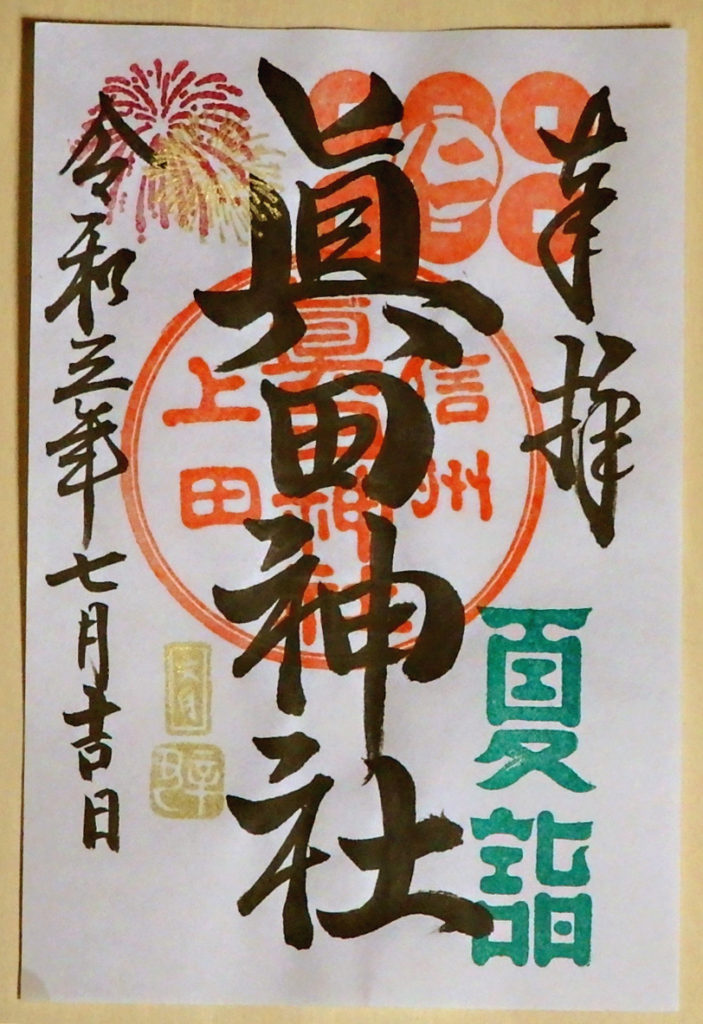 奉拝
仁
眞田神社
信州
眞田神社
上田
夏詣
令和三年七月吉日
文月